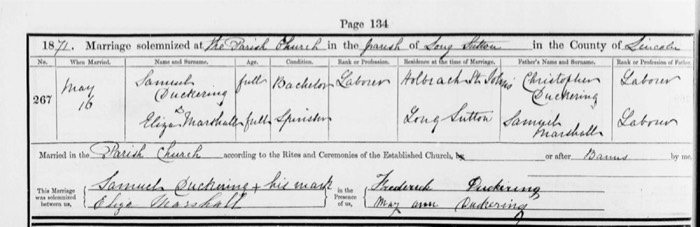 Page 134
1871. Marriage solemnized at The Parish Church in the parish of Long Sutton in the County of Lincoln
No. When Married. Name and Surname. Age. Condition. Rank or Profession. Residence at the time of Marriage. Father's Name and Surname. Rank or Profession of Father
267 May 16 Samuel Duckering full Bachelor Laborer Holbeach St Johns Christopher Duckering Laborer
Eliza Marshall full Spinster Long Sutton Samuel Marshall Laborer
Married in the Parish Church according to the Rites and Ceremonies of the Established Church, by or after Banns by me,
This Marriage was solemnized between us, Samuel Duckering + his mark in the Presence of us, Frederick Duckering
Eliza Marshall May ann Duckering